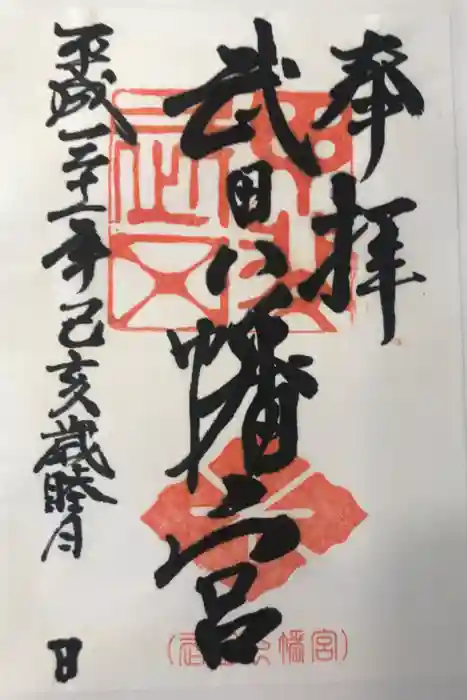 奉拝
武田八幡宮
平成三十一年己亥歳睦月
日
(武田八幡宮)